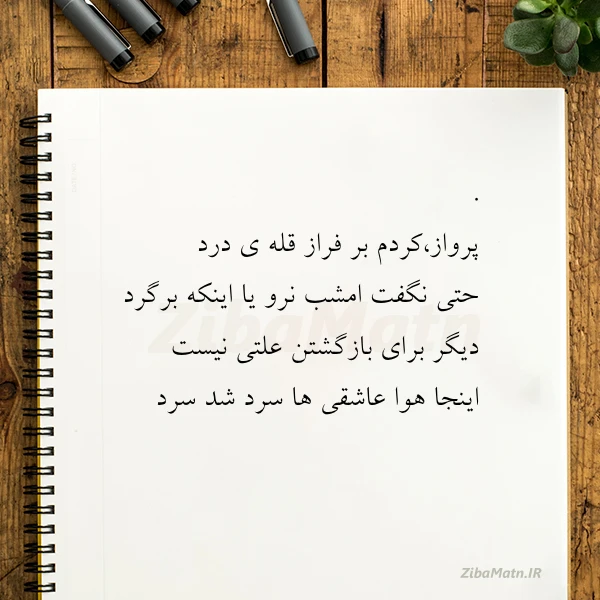 .
پرواز،کردم بر فراز قله ی درد
حتی نگفت امشب نرو یا اینکه برگرد
دیگر برای بازگشتن علتی نیست
اینجا هوا عاشقی ها سرد شد سرد
ZibaMatn
ZibaMatn.IR